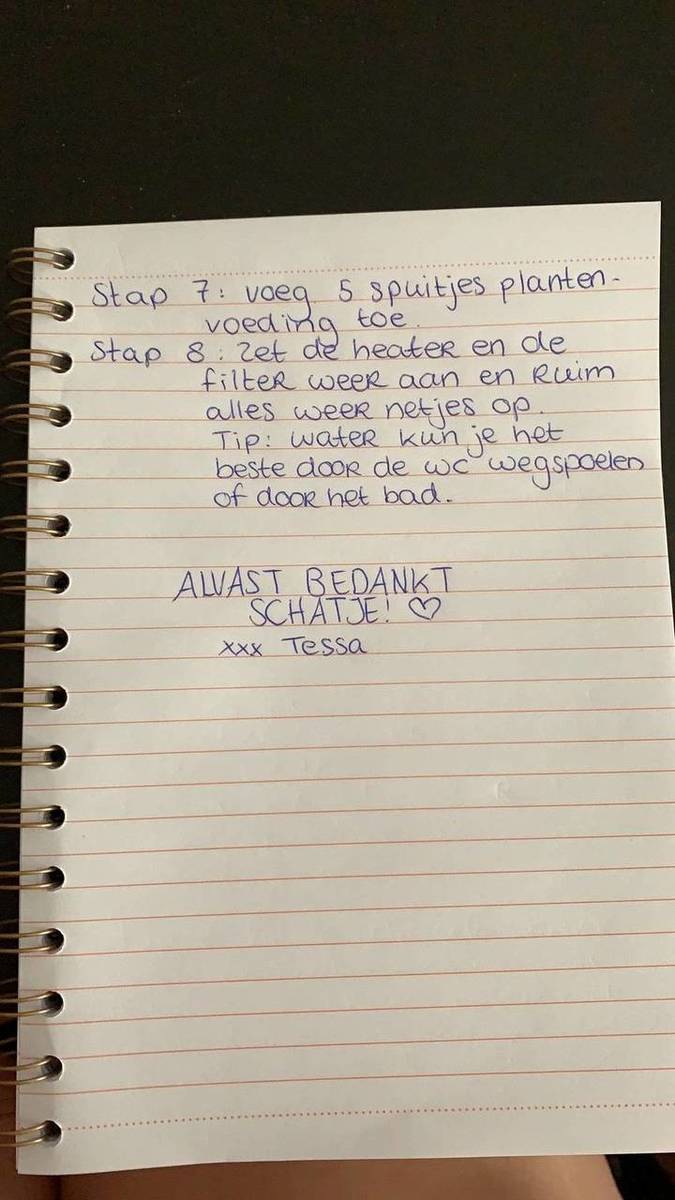 Stap 7: voeg 5 spuitjes planten-
voeding toe.
Stap 8: Zet de heater en de
filter weer aan en ruim
alles weer netjes op.
Tip: water kun je het
beste door de wc wegspoelen
of door het bad.
ALVAST BEDANKT
SCHATJE! ♡
xxx Tessa